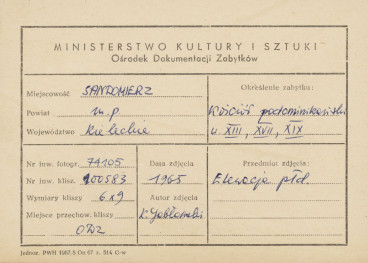 MINISTERSTWO KULTURY I SZTUKI
Ośrodek Dokumentacji Zabytków
Miejscowość SANDOMIERZ
Powiat m.p
Województwo Kieleckie
Określenie zabytku:
Kościół podominikański
u. XIII, XVII, XIX
Nr inw. fotogr. 74105
Nr inw. klisz. 100583
Wymiary kliszy 6x9
Miejsce przechow. kliszy
ODZ
Data zdjęcia
1965
Autor zdjęcia
K. Jabłoński
Przedmiar zdjęcia:
Elewacja płd.